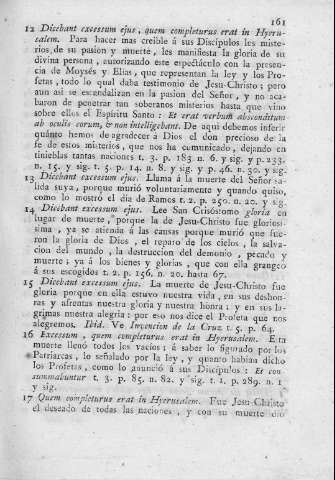 161
12 Dicebant excessum ejus, quem completurus erat in Hyeru-
salem. Para hacer mas creible á sus Discípulos los miste-
rios de su pasion y muerte, les manifiesta la gloria de su
divina persona, autorizando este espectáculo con la presen-
cia de Moysés y Elias, que representan la ley y los Pro-
fetas, todo lo qual daba testimonio de Jesu-Christo; pero
aun así se escandalizan en la pasion del Señor, y no aca-
baron de penetrar tan soberanos misterios hasta que vino
sobre ellos el Espíritu Santo: Et erat verbum absconditum
ab oculis eorum, & non intelligebant. De aqui debemos inferir
quánto hemos de agradecer á Dios el don precioso de la
fe de estos misterios, que nos ha comunicado, dejando en
tinieblas tantas naciones t. 3. p. 183. n. 6. y sig. y p. 233.
n. 15. y sig. t. 5. p. 14. n. 8. y sig. y p. 46. n. 30. y sig.
13 Dicebant excessum ejus. Llama á la muerte del Señor sa-
lida suya, porque murió voluntariamente y quando quiso,
como lo mostró el dia de Ramos t. 2. p. 250. n. 20. y sig.
14 Dicebant excessum ejus. Lee San Crisóstomo gloria en
lugar de muerte, porque la de Jesu-Christo fue gloriosí-
sima, ya se atienda á las causas porque murió que fue-
ron la gloria de Dios, el reparo de los cielos, la salva-
cion del mundo, la destruccion del demonio, pecado y
muerte; ya á los bienes y glorias, que con ella grangeó
á sus escogidos t. 2. p. 156. n. 20. hasta 67.
15 Dicebant excessum ejus. La muerte de Jesu-Christo fue
gloria porque en ella estuvo nuestra vida, en sus deshon-
ras y afrentas nuestra gloria y nuestra honra; y en sus lá-
grimas nuestra alegria: por eso nos dice el Profeta que nos
alegremos. Ibid. Ve Invencion de la Cruz t. 5. p. 64.
16 Excessum, quem completurus erat in Hyerusalem. Esta
muerte llenó todos los vacíos; á saber lo figurado por los
Patriarcas, lo señalado por la ley, y quanto habian dicho
los Profetas, como lo anunció á sus Discípulos: Et con-
summabuntur t. 3. p. 85. n. 82. y sig. t. 1. p. 289. n. 1
y sig.
17 Quem completurus erat in Hyerusalem. Fue Jesu-Christo
el deseado de todas las naciones, y con su muerte dió